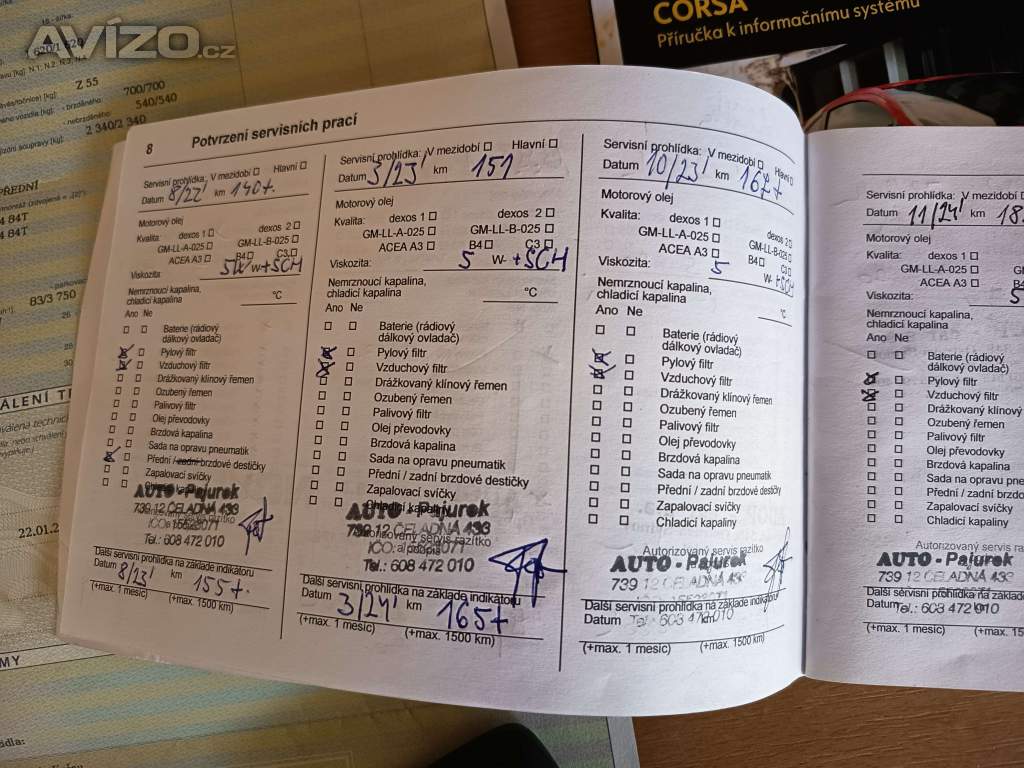 AVÍZO.cz
CORSA
Příručka k informačnímu systému
Z 55
700/700
540/540
2 340/2 340
83/3 750
22.01.2
8 Potvrzení servisních prací
Servisní prohlídka: V mezidobí Hlavní
Datum 8/22' km 140t.
Motorový olej
Kvalita: dexos 1 dexos 2
GM-LL-A-025 GM-LL-B-025
ACEA A3 B4 C3
Viskozita: 5W W+SCH
Nemrznoucí kapalina,
chladicí kapalina °C
Ano Ne
Baterie (rádiový
dálkový ovladač)
Pylový filtr
Vzduchový filtr
Drážkovaný klínový řemen
Ozubený řemen
Palivový filtr
Olej převodovky
Brzdová kapalina
Sada na opravu pneumatik
Přední / zadní brzdové destičky
Zapalovací svíčky
AUTO - Pajurek
739 12 ČELADNÁ 433
Tel.: 608 472 010
Další servisní prohlídka na základě indikátoru
Datum 8/23' km 155t.
(+max. 1 měsíc) (+max. 1500 km)
Servisní prohlídka: V mezidobí Hlavní
Datum 3/23' km 151
Motorový olej
Kvalita: dexos 1 dexos 2
GM-LL-A-025 GM-LL-B-025
ACEA A3 B4 C3
Viskozita: 5 W- +SCH
Nemrznoucí kapalina,
chladicí kapalina °C
Ano Ne
Baterie (rádiový
dálkový ovladač)
Pylový filtr
Vzduchový filtr
Drážkovaný klínový řemen
Ozubený řemen
Palivový filtr
Olej převodovky
Brzdová kapalina
Sada na opravu pneumatik
Přední / zadní brzdové destičky
Zapalovací svíčky
Chladicí kapaliny
AUTO - Pajurek
739 12 ČELADNÁ 433
Autorizovaný servis razítko
Tel.: 608 472 010
Další servisní prohlídka na základě indikátoru
Datum 3/24' km 165t
(+max. 1 měsíc) (+max. 1500 km)
Servisní prohlídka: V mezidobí Hlavní
Datum 10/23' km 167t
Motorový olej
Kvalita: dexos 1 dexos 2
GM-LL-A-025 GM-LL-B-025
ACEA A3 B4 C3
Viskozita: 5 W- +SCH
Nemrznoucí kapalina,
chladicí kapalina °C
Ano Ne
Baterie (rádiový
dálkový ovladač)
Pylový filtr
Vzduchový filtr
Drážkovaný klínový řemen
Ozubený řemen
Palivový filtr
Olej převodovky
Brzdová kapalina
Sada na opravu pneumatik
Přední / zadní brzdové destičky
Zapalovací svíčky
Chladicí kapaliny
Autorizovaný servis razítko
AUTO - Pajurek
739 12 ČELADNÁ 433
Další servisní prohlídka na základě indikátoru
Datum Tel.: 608 472 010 km
(+max. 1 měsíc) (+max. 1500 km)
Servisní prohlídka: V mezidobí
Datum 11/24' km 18
Motorový olej
Kvalita: dexos 1
GM-LL-A-025
ACEA A3
Viskozita: 5
Nemrznoucí kapalina,
chladicí kapalina
Ano Ne
Baterie (rádiový
dálkový ovladač)
Pylový filtr
Vzduchový filtr
Drážkovaný klínový
Ozubený řemen
Palivový filtr
Olej převodovky
Brzdová kapalina
Sada na opravu pneum
Přední / zadní brzdo
Zapalovací svíčky
Chladicí kapaliny
Autorizovaný servis raz
AUTO - Pajurek
739 12 ČELADNÁ 433
Další servisní prohlídka na základě ind
Datum Tel.: 608 472 010
(+max. 1 měsíc) (+max. 15